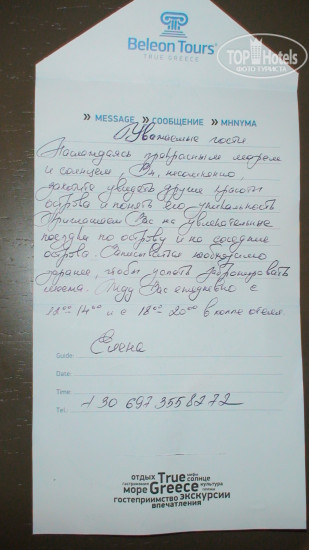 Beleon Tours
TRUE GREECE
TOP Hotels
ФОТО ТУРИСТА
» MESSAGE » СООБЩЕНИЕ » ΜΗΝΥΜΑ
Уважаемые гости
Наслаждаясь прекрасным морем
и солнцем, Вы, несомненно,
захотите увидеть другие красоты
острова и понять его уникальность
Приглашаем Вас на увлекательные
поездки по острову и на соседние
острова. Записываться необходимо
заранее, чтобы успеть забронировать
места. Жду Вас ежедневно с
14:00 и с 18:00 20:00 в холле отеля.
Елена
Guide:
Date:
Time:
Tel.: +30 697 3558272
отдых True мифы солнце
гастрономия море Greece культура
гостеприимство экскурсии
впечатления